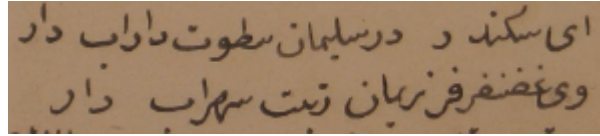 ای سکندر در سلیمان سطوت داراب دار
وی غضنفر فر نریمان رتبت سهراب دار